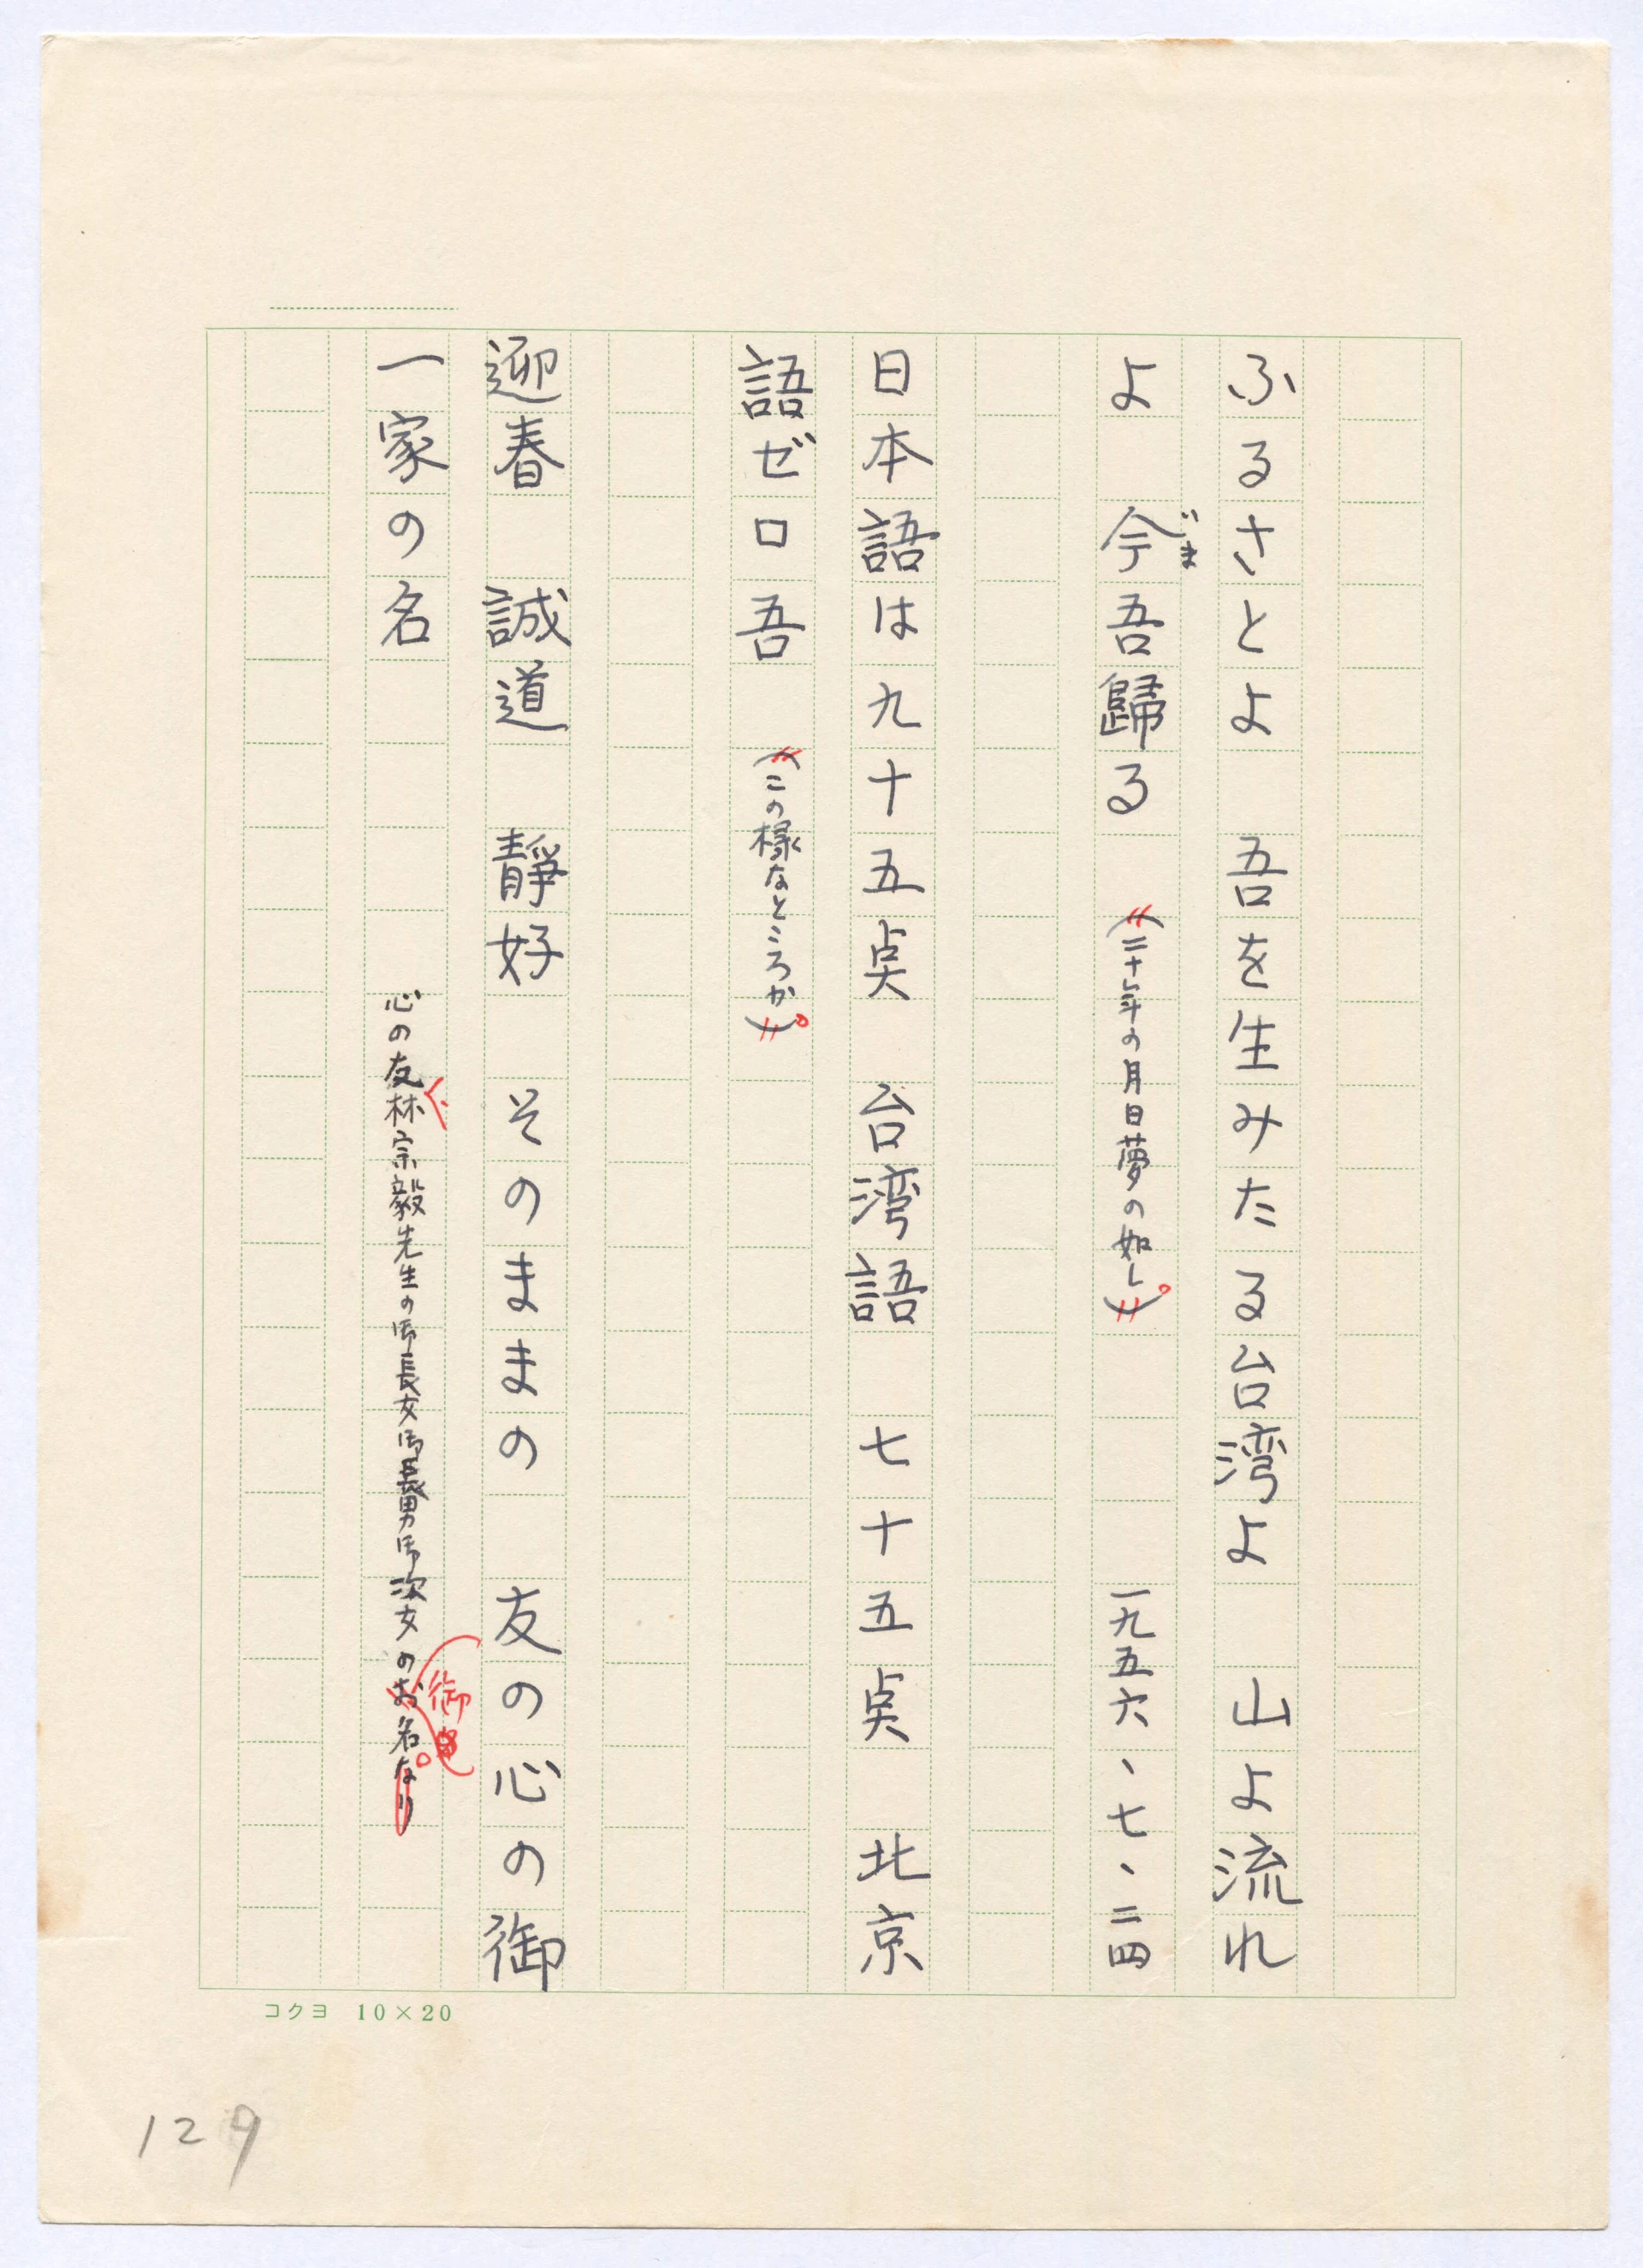 ふるさとよ　吾を生みたる台湾よ　山よ流れ
よ　今吾歸る　(二十年の月日夢の如し)。　一九五六、七、二四
じま
日本語は九十五点　台湾語　七十五点　北京
語ゼロ吾　(この様なところか)。
迎春　誠道　靜好　そのままの　友の心の御
一家の名　心の友林宗毅先生の御長女御義男御次女のお名なり。
御
コクヨ 10×20
129